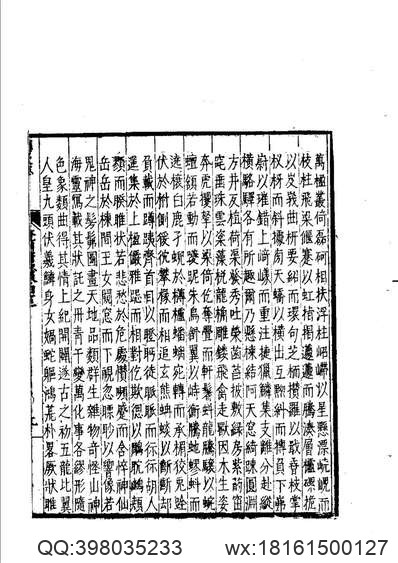 萬楹叢倚磊砢相扶浮柱岧嵽以星懸漂嶢嵲而
枝柱飛梁偃蹇以虹指揭蘧蘧而騰湊層櫨磥垝
以岌峩曲枅要紹而環句芝栭欑羅以戢孴枝掌
杈枒而斜據傍夭蟜以橫出互黝糾而搏負下岪
蔚以璀錯上崎嶬而重注捷獵鱗集支離分赴縱
橫駱驛各有所趣爾乃懸棟結阿天窻綺疏圓淵
方井反植荷蕖發秀吐榮菡萏披敷綠房紫菂窋
窀垂珠雲楶藻梲龍桷雕鏤飛禽走獸因木生姿
奔虎攫挐以梁倚仡奮舋而軒鬐虯龍騰驤以蜿
蟺頷若動而躨跜朱鳥舒翼以峙衡騰蛇蟉虯而
遶榱白鹿孑蜺於欂櫨蟠螭宛轉而承楣狡兔跧
伏於柎側猨狖攀椽而相追玄熊以齗齗卻
負載而蹲跠齊首目以瞪眄徒脈脈而狋狋胡人
遙集於上楹儼雅跽而相對仡欺以鵰
顟而睽睢狀若悲愁於危處憯嚬蹙而含悴神仙
岳岳於棟間玉女闚窻而下視忽瞟眇以響像若
鬼神之髣髴圖畫天地品類群生雜物奇怪山神
海靈寫載其狀託之丹青千變萬化事各繆形隨
色象類曲得其情上紀開闢遂古之初五龍比翼
人皇九頭伏羲鱗身女媧蛇軀鴻荒朴略厥狀睢
QQ:398035233 wx:18161500127